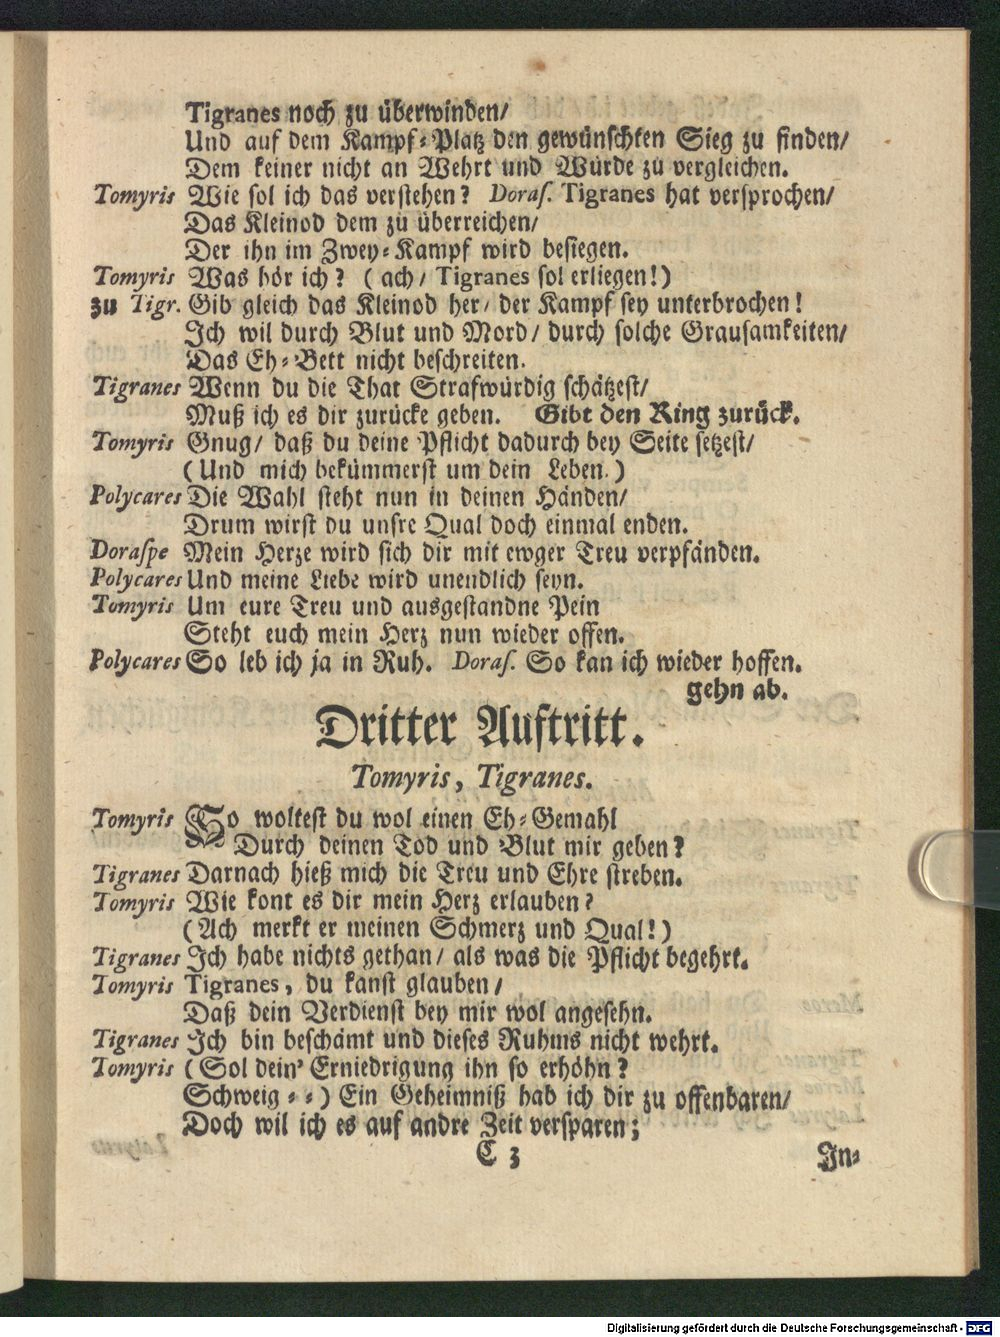 Tigranes noch zu überwinden/
Und auf dem Kampf-Platz den gewünschten Sieg zu finden/
Dem keiner nicht an Wehrt und Würde zu vergleichen.
Tomyris Wie sol ich das verstehen? Doras. Tigranes hat versprochen/
Das Kleinod dem zu überreichen/
Der ihn im Zwey-Kampf wird besiegen.
Tomyris Was hör ich? (ach/ Tigranes sol erliegen!)
zu Tigr. Gib gleich das Kleinod her/ der Kampf sey unterbrochen!
Ich wil durch Blut und Mord/ durch solche Grausamkeiten/
Das Eh-Bett nicht beschreiten.
Tigranes Wenn du die That Strafwürdig schätzest/
Muß ich es dir zurücke geben. Gibt den Ring zurück.
Tomyris Gnug/ daß du deine Pflicht dadurch bey Seite setzest/
(Und mich bekümmerst um dein Leben.)
Polycares Die Wahl steht nun in deinen Händen/
Drum wirst du unsre Qual doch einmal enden.
Doraspe Mein Herze wird sich dir mit ewger Treu verpfänden.
Polycares Und meine Liebe wird unendlich seyn.
Tomyris Um eure Treu und ausgestandne Pein
Steht euch mein Herz nun wieder offen.
Polycares So leb ich ja in Ruh. Doras. So kan ich wieder hoffen.
gehn ab.
Dritter Auftritt.
Tomyris, Tigranes.
Tomyris So woltest du wol einen Eh-Gemahl
Durch deinen Tod und Blut mir geben?
Tigranes Darnach hieß mich die Treu und Ehre streben.
Tomyris Wie kont es dir mein Herz erlauben?
(Ach merkt er meinen Schmerz und Qual!)
Tigranes Ich habe nichts gethan/ als was die Pflicht begehrt.
Tomyris Tigranes, du kanst glauben/
Daß dein Verdienst bey mir wol angesehn.
Tigranes Ich bin beschämt und dieses Ruhms nicht wehrt.
Tomyris (Sol dein' Erniedrigung ihn so erhöhn?
Schweig - -) Ein Geheimniß hab ich dir zu offenbaren/
Doch wil ich es auf andre Zeit versparen;
C 3 In-
Digitalisierung gefördert durch die Deutsche Forschungsgemeinschaft - DFG